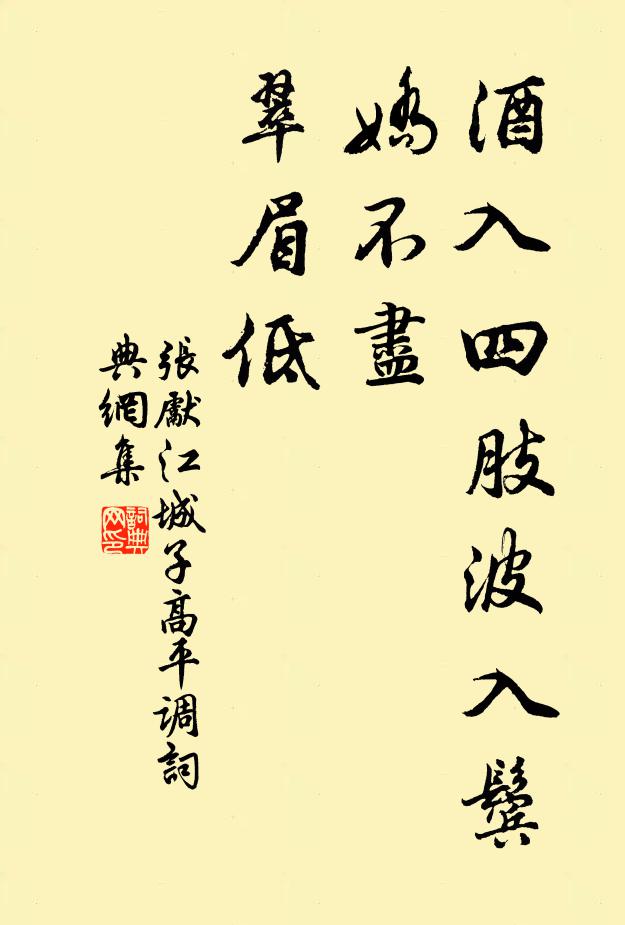 酒入四肢波入鬓
嬌不盡
翠眉低
張獻江城子高平調詞
典網集
詞典
网印